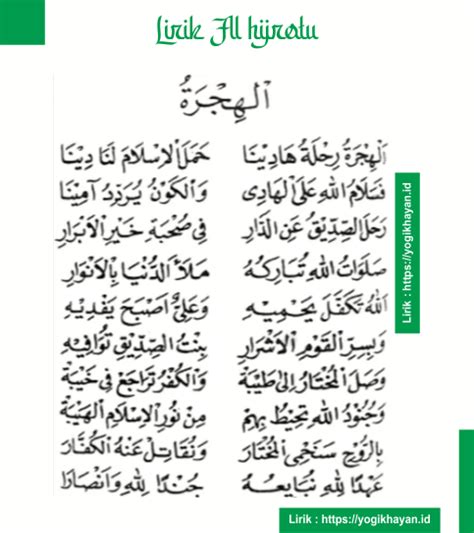 Lirik Al hijrotu
اَلْهِجْرَةُ
اَلْهِجْرَةُ رِحْلَةُ هَادِيْنَا حَمَلَ الْاِسْلَامَ لَنَا دِيْنَا
فَسَلَامُ اللهِ عَلَى الْهَادِى وَالْكَوْنُ يُرَدِّدُ آمِيْنَا
رَحَلَ الصِّدِّيْقُ عَنِ الدَّارِ فِى صُحْبَةِ خَيْرِ الْاَبْرَارِ
صَلَوَاتُ اللهِ تُبَارِكُهُ مَلَأَ الدُّنْيَا بِالْاَنْوَارِ
اَللهُ تَكَفَّلَ يَحْمِيْهِ وَعَلِىٌّ اَصْبَحَ يَفْدِيْهِ
وَبِسِرِّ الْقَوْمِ الْاَشْرَارِ بِنْتُ الصِّدِّيْقِ تُوَافِيْهِ
وَصَلَ الْمُخْتَارُ اِلَى طَيْبَةَ وَالْكُفْرُ تَرَاجَعَ فِى خَيْبَةَ
وَجُنُوْدُ اللهِ تُحِيْطُ بِهِمْ مِنْ نُوْرِ الْاِسْلَامِ الْهَيْبَةَ
بِالرُّوْحِ سَنَحْمِى الْمُخْتَارَ وَنُقَاتِلُ عَنْهُ الْكُفَّارَ
عَهْدًا لِلهِ نُبَايِعُهُ جُنْدًا لِلهِ وَاَنْصَارًا
Lirik : https://yogikhayan.id
Lirik : https://yogikhayan.id